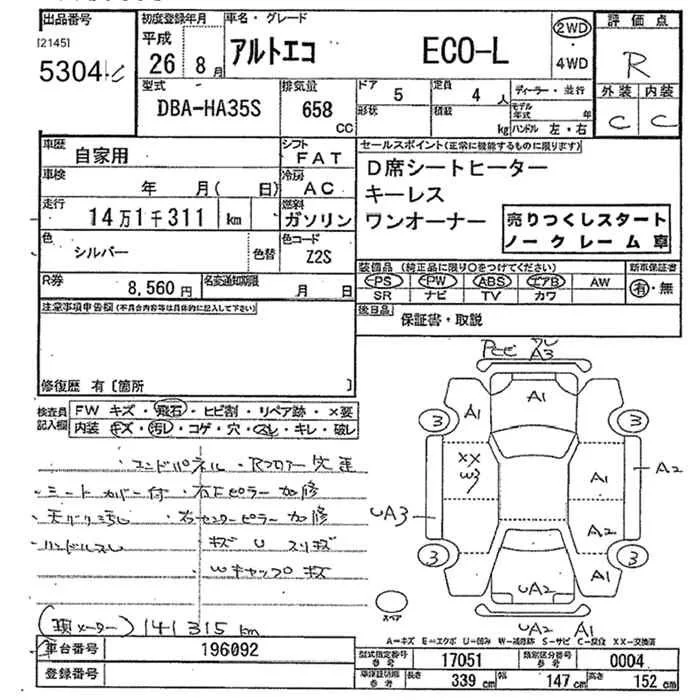 出品番号 初度登録年月 車名・グレード 評価点
[2145]
平成
5304 26 8月 アルトエコ ECO-L 2WD ・ 4WD R
型式 排気量 ドア 定員 ディーラー・並行 外装 内装
DBA-HA35S 658 CC 5 4人 C C
形状 積載 kg モデル年式 年 ハンドル 左・右
車歴 自家用 シフト FAT セールスポイント(正常に機能するものに限ります)
車検 年 月( 日) 冷房 AC D席シートヒーター
キーレス
走行 14万1千311 km 燃料 ガソリン ワンオーナー
売りつくしスタート
ノークレーム車
色 シルバー 色替 色コード Z2S
装備品 (純正品に限り○をつけてください) 新車保証書
R券 8,560円 名変通知期限 月 日 PS PW ABS エアB AW 有・無
SR ナビ TV カワ
注意事項申告欄(不具合内容等は具体的に記入して下さい) 後日品 保証書・取説
修復歴 有〔箇所 〕
検査員記入欄 FW キズ・飛石・ヒビ割・リペア跡・×要
内装 キズ・汚レ・コゲ・穴・スレ・キレ・破レ
A3
A1 A1
3 3
XX
W3 A1 A2
UA3 A2
3 3
A1
UA2
UA2 A1
スペア
シートカバー付 ・右Fピラー 加修
・右センターピラー 加修
・ハンドルスレ キズ U スリキズ
Wキャップ キズ
(現メーター) 141315 km
A=キズ E=エクボ U=凹み W=補修跡 S=サビ C=腐食 XX=交換済
車台番号 196092 型式指定番号 参考 17051 類別区分番号 参考 0004
登録番号 長さ 339 cm 幅 147 cm 高さ 152 cm